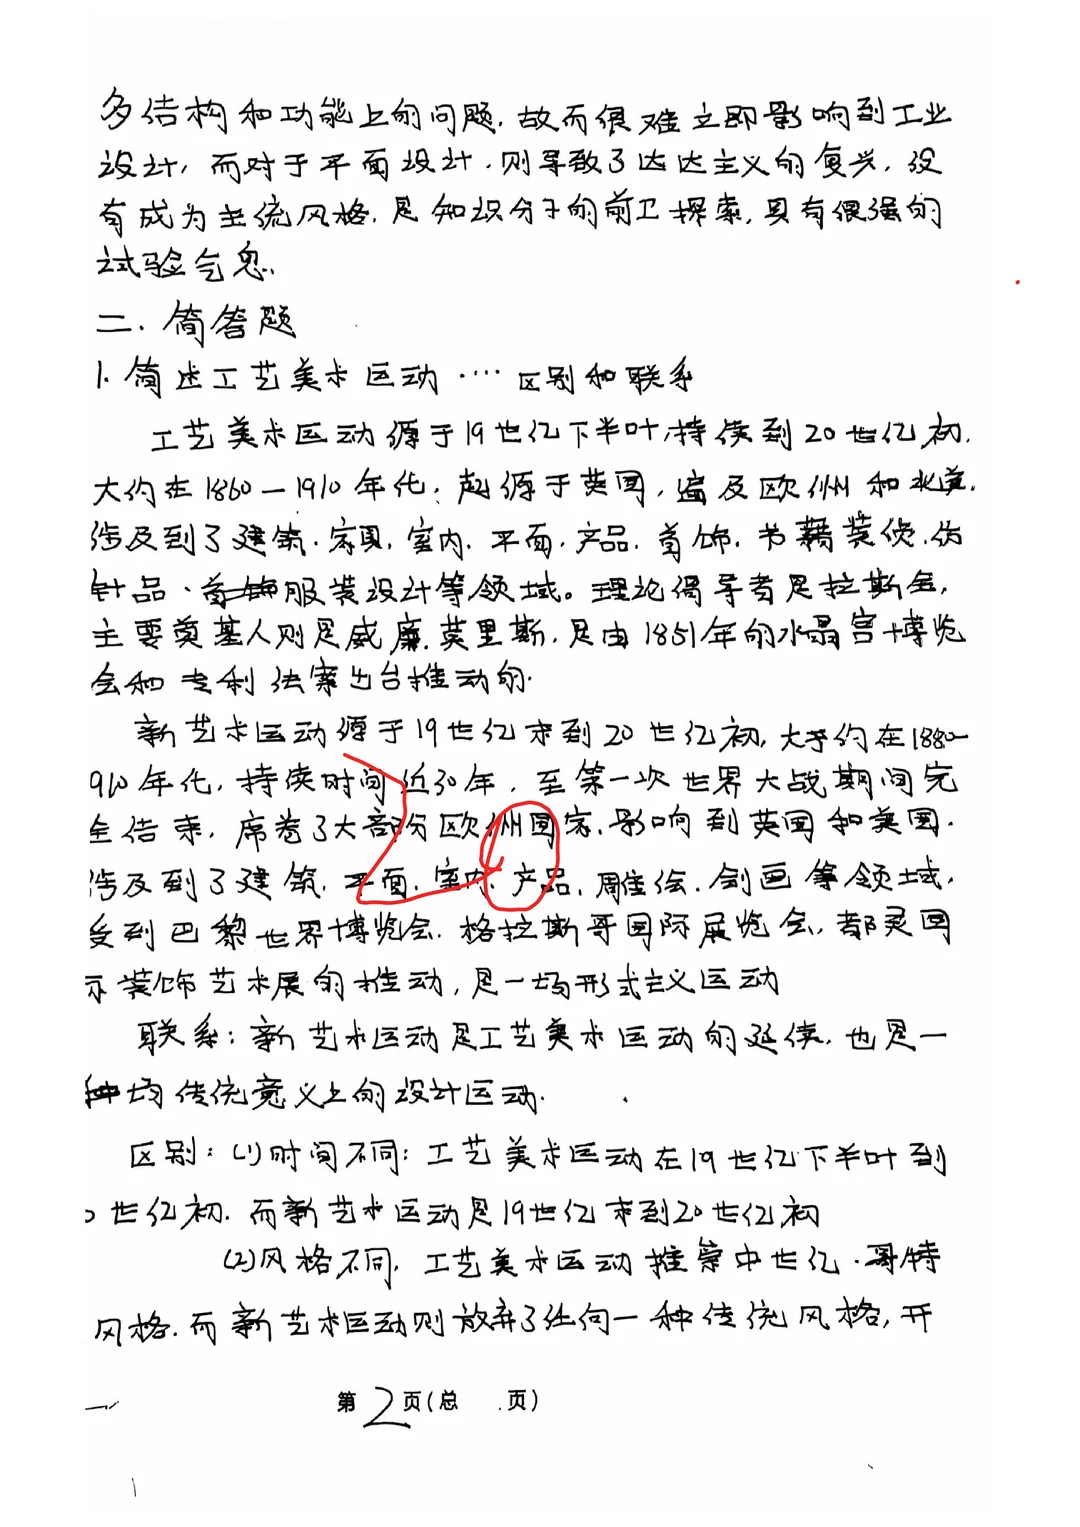 多结构和功能上的问题，故而很难立即影响到工业
设计，而对于平面设计，则导致了达达主义的复兴，没
有成为主流风格，是知识分子的前卫探索，具有很强的
试验气息．
二．简答题
1．简述工艺美术运动····区别和联系
工艺美术运动源于19世亿下半叶，持续到20世亿初．
大约在1860－1910年代；起源于英国，遍及欧州和北美．
涉及到了建筑．家具．室内．平面．产品．首饰．书籍装侦．仿
针品．服装设计等领域。理论倡导者是拉斯金，
主要奠基人则是威廉．莫里斯，是由1851年的水晶宫博览
会和专利法案出台推动的．
新艺术运动源于19世亿末到20世亿初，大约在1880－
910年代，持续时间近30年，至第一次世界大战期间完
全结束，席卷了大部分欧州国家．影响到英国和美国．
涉及到了建筑．平面．室内．产品．雕绘．剑画等领域．
受到巴黎世界博览会．格拉斯哥国际展览会，都灵国
示装饰艺术展的推动，是一场形式主义运动
联系：新艺术运动是工艺美术运动的延续，也是一
种场传统意义上的设计运动．
区别：(1)时间不同：工艺美术运动在19世亿下半叶到
0世亿初．而新艺术运动是19世亿末到20世亿初
(2)风格不同．工艺美术运动推崇中世亿．哥特
风格．而新艺术运动则放弃了任何一种传统风格，开
第2页(总 页)